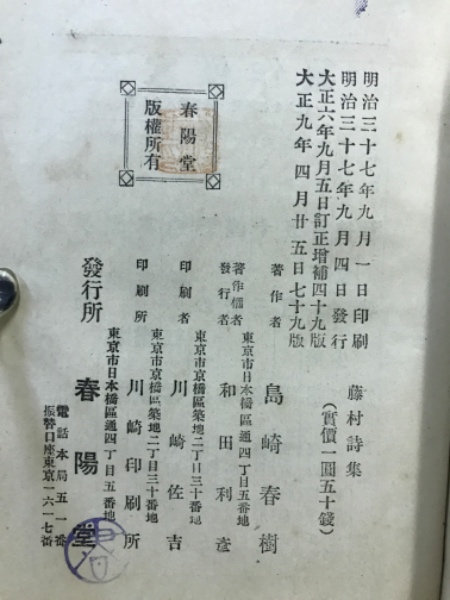 明治三十七年九月一日印刷
明治三十七年九月四日發行
大正六年九月五日訂正增補四十九版
大正九年四月廿五日七十九版
春陽堂
版權所有
藤村詩集
(實價一圓五十錢)
著作者 島崎春樹
東京市日本橋區通四丁目五番地
著作權者
發行者 和田利彥
東京市京橋區築地二丁目三十番地
印刷者 川崎佐吉
東京市京橋區築地二丁目三十番地
印刷所 川崎印刷所
東京市日本橋區通四丁目五番地
發行所 春陽堂
電話本局五一番
振替口座東京一六一七番